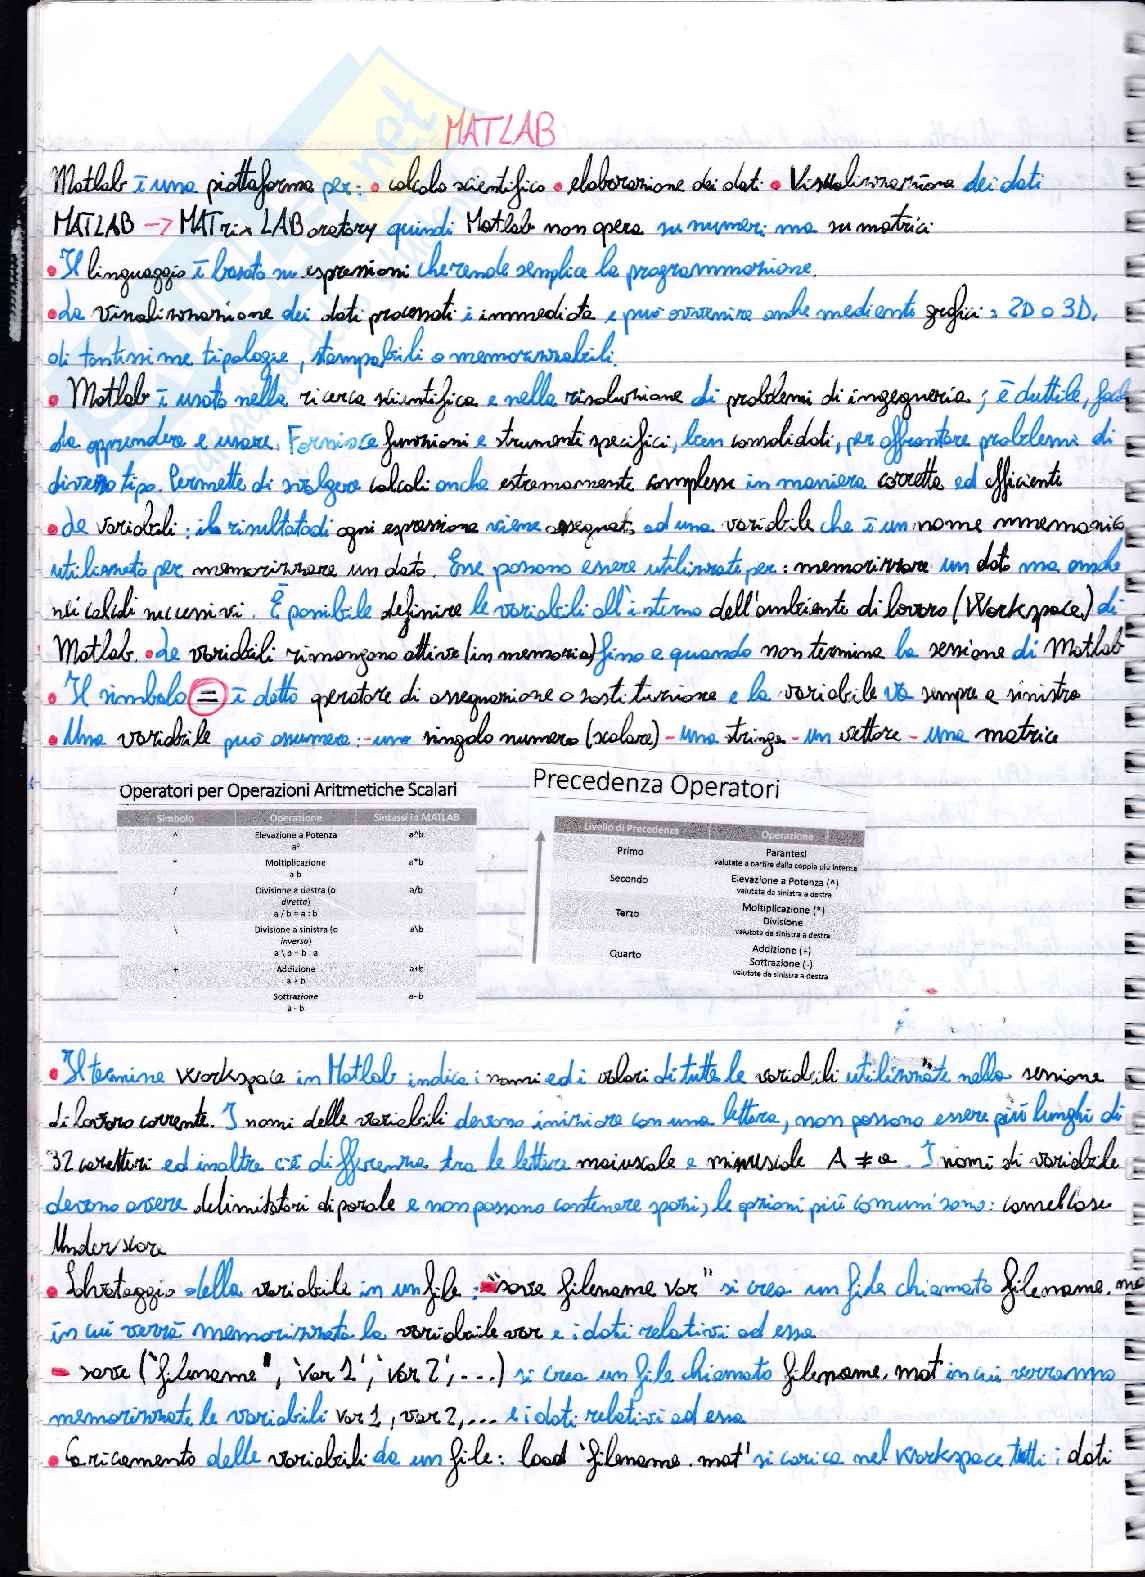 MATLAB
Matlab è una piattaforma per: • calcolo scientifico • elaborazione dei dati • Visualizzazione dei dati
MATLAB → MATrix LABoratory quindi Matlab non opera su numeri ma su matrici
• Il linguaggio è basato su espressioni che rende semplice la programmazione.
• La visualizzazione dei dati processati è immediata e può avvenire anche mediante grafici 2D o 3D,
di tantissime tipologie, stampabili o memorizzabili.
• Matlab è usato nella ricerca scientifica e nella risoluzione di problemi di ingegneria; è duttile,
da apprendere e usare. Fornisce funzioni e strumenti specifici, ben consolidati, per affrontare problemi di
diverso tipo. Permette di svolgere calcoli anche estremamente complessi in maniera corretta ed efficiente
• Le variabili: il risultato di ogni espressione viene assegnato ad una variabile che è un nome mnemonico
utilizzato per memorizzare un dato. Esse possono essere utilizzate per: memorizzare un dato ma anche
nei calcoli successivi. È possibile definire le variabili all'interno dell'ambiente di lavoro (Workspace) di
Matlab. • Le variabili rimangono attive (in memoria) fino a quando non termina la sessione di Matlab
• Il simbolo = è detto operatore di assegnazione o sostituzione e la variabile va sempre a sinistra
• Una variabile può assumere: - una singolo numero (scalare) - una stringa - un vettore - una matrice
Operatori per Operazioni Aritmetiche Scalari
Simbolo Operazione Sintassi in MATLAB
^ Elevazione a Potenza a^b
* Moltiplicazione a*b
a b
/ Divisione a destra (o a/b
diretta)
a / b = a : b
\ Divisione a sinistra (o a\b
inversa)
+ Addizione a+b
a + b
- Sottrazione a-b
a - b
Precedenza Operatori
Livello di Precedenza Operazione
Primo Parantesi
valutate a partire dalla coppia più interna
Secondo Elevazione a Potenza (^)
valutate da sinistra a destra
Terzo Moltiplicazione (*)
Divisione
valutate da sinistra a destra
Quarto Addizione (+)
Sottrazione (-)
valutate da sinistra a destra
• Il termine workspace in Matlab indica i nomi ed i valori di tutte le variabili utilizzate nella sessione
di lavoro corrente. I nomi delle variabili devono iniziare con una lettera, non possono essere più lunghi di
32 caratteri ed inoltre c'è differenza tra le lettere maiuscole e minuscole A ≠ a. I nomi di variabile
devono avere delimitatori di parole e non possono contenere spazi, le opzioni più comuni sono: camelCase
Underscore
• Salvataggio della variabile in un file: "save filename var" si crea un file chiamato filename.ma
in cui verrà memorizzata la variabile var e i dati relativi ad essa
- save ('filename', 'var1', 'var2', ....) si crea un file chiamato filename.mat in cui verranno
memorizzate le variabili var1, var2, ... e i dati relativi ad essa
• Caricamento delle variabili da un file: load 'filename.mat' si carica nel workspace tutti i dati